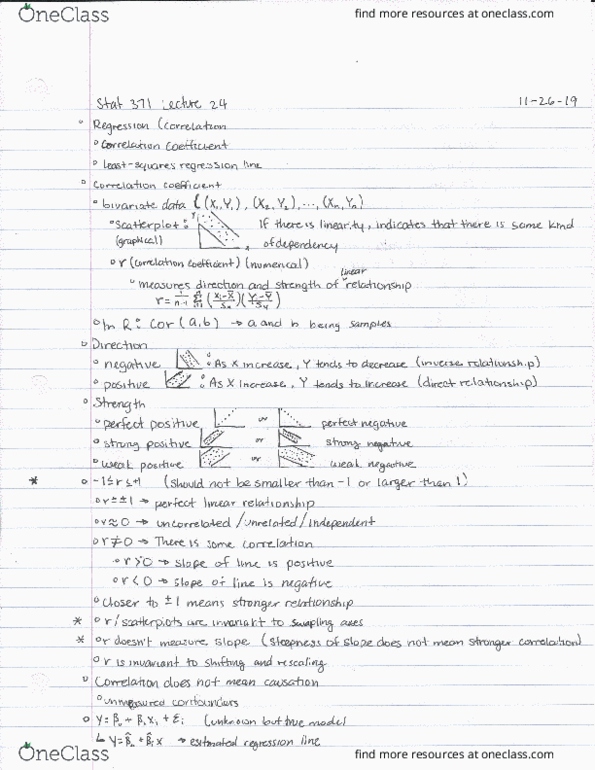 OneClass
find more resources at oneclass.com
Stat 371 Lecture 24 11-26-19
Regression (correlation
correlation coefficient
Least-squares regression line
Correlation coefficient
bivariate data {(X₁,Y₁), (X₂,Y₂), ..., (Xₙ,Yₙ)
Scatterplot: If there is linearity, indicates that there is some kind
(graphical) of dependency
r (correlation coefficient) (numerical)
linear
measures direction and strength of relationship
r = 1/(n-1) Σ ((Xᵢ-X̄)/Sₓ)((Yᵢ-Ȳ)/Sᵧ)
In R: cor(a,b) → a and b being samples
Direction
negative : As X increase, Y tends to decrease (inverse relationship)
positive : As X increase, Y tends to increase (direct relationship)
Strength
perfect positive or perfect negative
strong positive or strong negative
weak positive or weak negative
* -1≤r≤+1 (should not be smaller than -1 or larger than 1)
r=±1 → perfect linear relationship
r≈0 → uncorrelated/unrelated/independent
r≠0 → There is some correlation
r>0 → slope of line is positive
r<0 → slope of line is negative
closer to ±1 means stronger relationship
* r/scatterplots are invariant to swapping axes
* r doesn't measure slope (steepness of slope does not mean stronger correlation)
r is invariant to shifting and rescaling
Correlation does not mean causation
unmeasured confounders
Y=β₀+β₁xᵢ+εᵢ (unknown but true model
↳ Y=β̂₀+β̂₁x → estimated regression line
OneClass
find more resources at oneclass.com